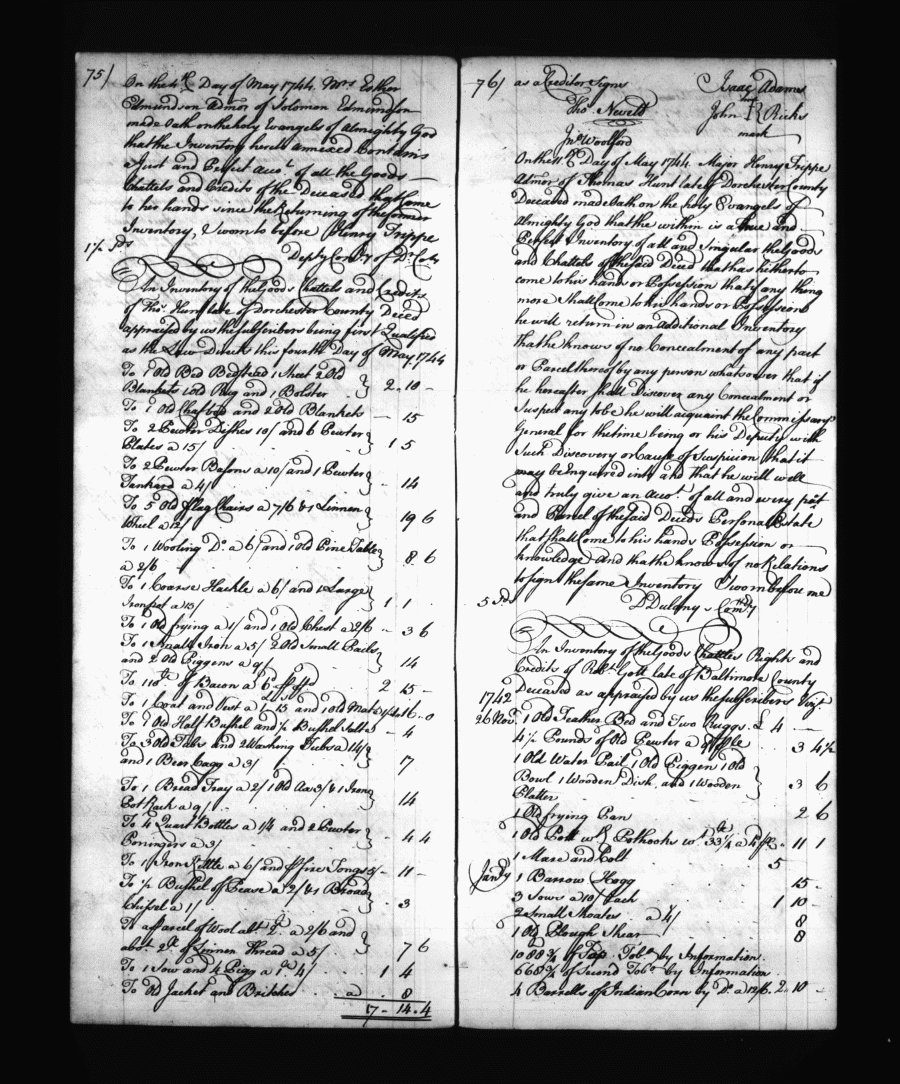 75/
On the 4th Day of May 1744 Mrs Esther
Edmundson Admx of Solomon Edmundson
made Oath on the holy Evangels of Almighty God
that the Inventory hereto annexed Contains
Just and Perfect Acct of all the Goods
Chattels and Credits of the Deceased that Come
to her hands since the Returning of the former
Inventory, Sworn to before Henry Trippe
17. Sds Depty Comry of Dr. Coty
An Inventory of the Goods Chattels and Credits
of Thos. Hunt late of Dorchester County Deced
appraised by us the Subscribers being first Qualified
as the Law Directs this fourth Day of May 1744
To 1 Old Bed Bedstead 1 Sheet 2 Old
Blankets 1 old Rug and 1 Bolster } 2 - 10 -
To 1 Old Chafbed and 2 Old Blankets - 15
To 2 Pewter Dishes 10/ and 6 Pewter
Plates a 15/ } 1 5
To 2 Pewter Basons a 10/ and 1 Pewter
Tankard a 4/ } - 14
To 5 Old flag Chairs a 7/6 & 1 Linnen
Wheel a 12/ } 19 6
To 1 Wooling Do. a 6/ and 1 Old Pine Table
a 2/6 } 8 . 6
To 1 Coarse Hackle a 6/ and 1 Large
Iron pot a 15/ } 1 1
To 1 Old frying a 1/ and 1 Old Chest a 2/6 - 3 6
To 1 Small Iron a 5/ 2 Old Small Pails
and 2 Old Piggens a 9/ } 14
To 110 lb of Bacon a 6 2 15 -
To 1 Coat and Vest a 1-15 and 1 Old 16 - 0
To 1 Old Half Bushel and ½ Bushel Salt - 4
To 3 Old Tubs and 2 Washing Tubs a 14/
and 1 Beer Cagg a 3/ } 7
To 1 Bread Tray a 2/ 1 Old Ax 3/ & 1 Iron
Pot Rack a 9/ } 14
To 4 Quart Bottles a 1/4 and 2 Pewter
Porringers a 3/ } - 4 4
To 1 Iron Kettle a 6/ and fire Tongs 5/ - 11 -
To ½ Bushel of Pease a 2/ & 1 Broad
Chissel a 1/ } . 3
To a Parcel of Wool abt. a 2/6 and
abt. of Linnen Thread a 5/ } 7 6
To 1 Sow and 4 Pigs a 4/ 1 4
To Old Jacket and Britches a 8
17 - 14 - 4
76/ as a Creditor Signs Isaac Adams
Thos. Nevett John R Ricks
mark
Jno. Woolford
On the 11th Day of May 1744 Major Henry Trippe
Admor of Thomas Hunt late of Dorchester County
Deceased made Oath on the holy Evangels of
Almighty God that the within is a true and
Perfect Inventory of all and Singular the goods
and Chattels of the said Deced that has hitherto
come to his hands or Possession that if any thing
more shall come to his hands or Possession
he will return in an additional Inventory
that he knows of no Concealment of any part
or Parcel thereof by any person whatsoever that if
he hereafter shall Discover any Concealment or
Suspect any to be he will acquaint the Commissary
General for the time being or his Deputy with
Such Discovery or Cause of Suspicion that it
may be Inquired into and that he will well
and truly give an Acct. of all and every part
and Parcel of the said Deceds Personal Estate
that shall Come to his hands Possession or
knowledge and that he knows of no Relations
to sign the same Inventory Sworn before me
5 Sds D Dulany Comry
An Inventory of the Goods Chattles Rights and
Credits of Robt. Gott late of Baltimore County
Deceased as appraised by us the subscribers Vizt.
1742
26 Novr. 1 Old Feather Bed and Two Ruggs £ 4 -
4½ Pounds of Old Pewter a 3 4½
1 Old Water Pail 1 Old Piggen 1 Old
Bowl 1 Wooden Dish, and 1 Wooden
Platter } 3 6
1 Old frying Pan 2 6
1 Old Pott wt. Pothooks wt. 33¼ a 4 - 11 1
1 Mare and Colt 5
Jany 1 Barrow Hogg 15 -
3 Sows a 10/ Each 1 10 -
2 Small Shoates a 4/ 8
1 Old Plough Shear 8
1088¾ of Top Tobo. by Information
668¾ of Second Tobo. by Information
4 Barrells of Indian Corn by Do. a 12/6 2 - 10 -